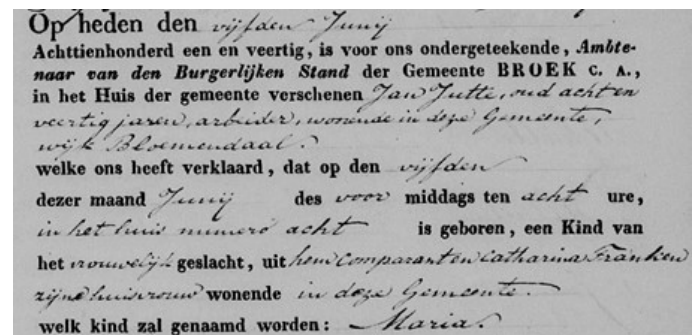 Op heden den vijfden Junij
Achttienhonderd een en veertig, is voor ons ondergeteekende, Ambte-
naar van den Burgerlijken Stand der Gemeente BROEK C. A.,
in het Huis der gemeente verschenen Jan Jutte, oud acht en
veertig jaren, arbeider, wonende in deze Gemeente,
wijk Bloemendaal.
welke ons heeft verklaard, dat op den vijfden
dezer maand Junij des voor middags ten acht ure,
in het huis numero acht is geboren, een Kind van
het vrouwelijk geslacht, uit hem comparant en Catharina Franken
zijne huisvrouw wonende in deze Gemeente.
welk kind zal genaamd worden: Maria.